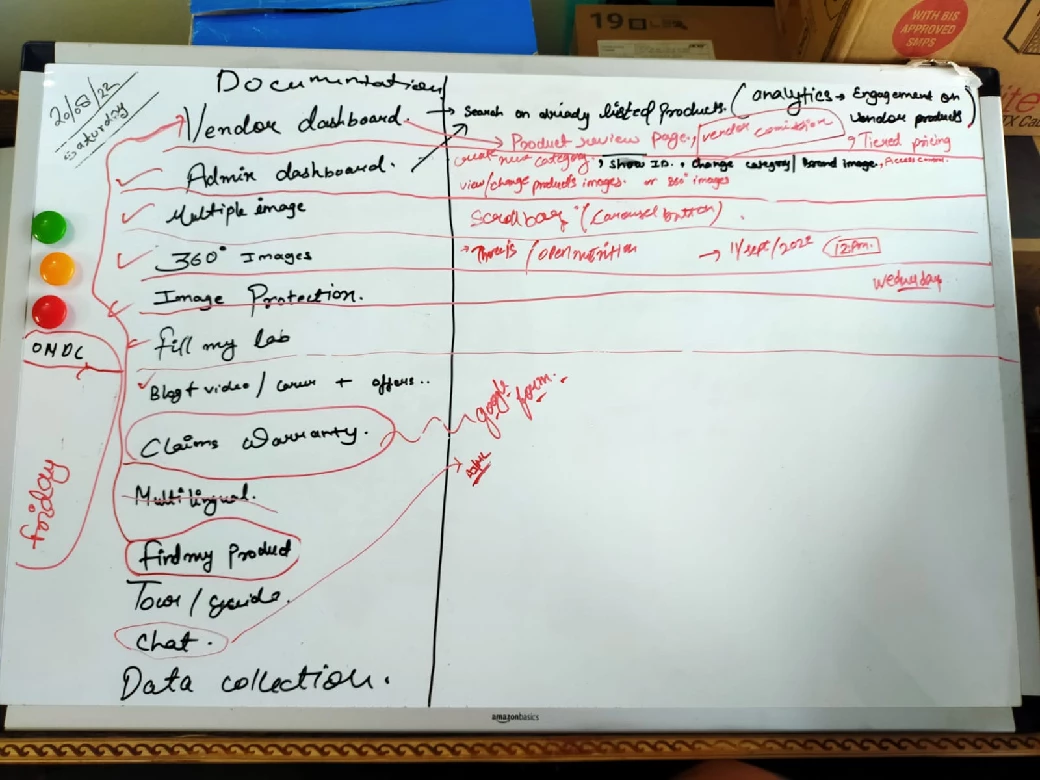 19
WITH BIS
APPROVED
SMPS
20/08/22
Saturday
Documentation
Vendor dashboard.
→ Search on already listed Products. (analytics → Engagement on
Vendor products)
→ Product review page, vendor comission, Tiered pricing
Admin dashboard.
new category, Show ID., Change category/ Brand image,
view/change products images. or 360° images
Multiple image
Scrollbar (Carousel button).
360° Images
→ 14/sept/2022 12pm.
Image Protection.
Wednesday
fill my lab
ONDC
Blog + video / career + offers..
google form.
Claims Warranty.
friday
Multilingual.
find my Product
Tour / guide.
Chat.
Data collection.
amazonbasics